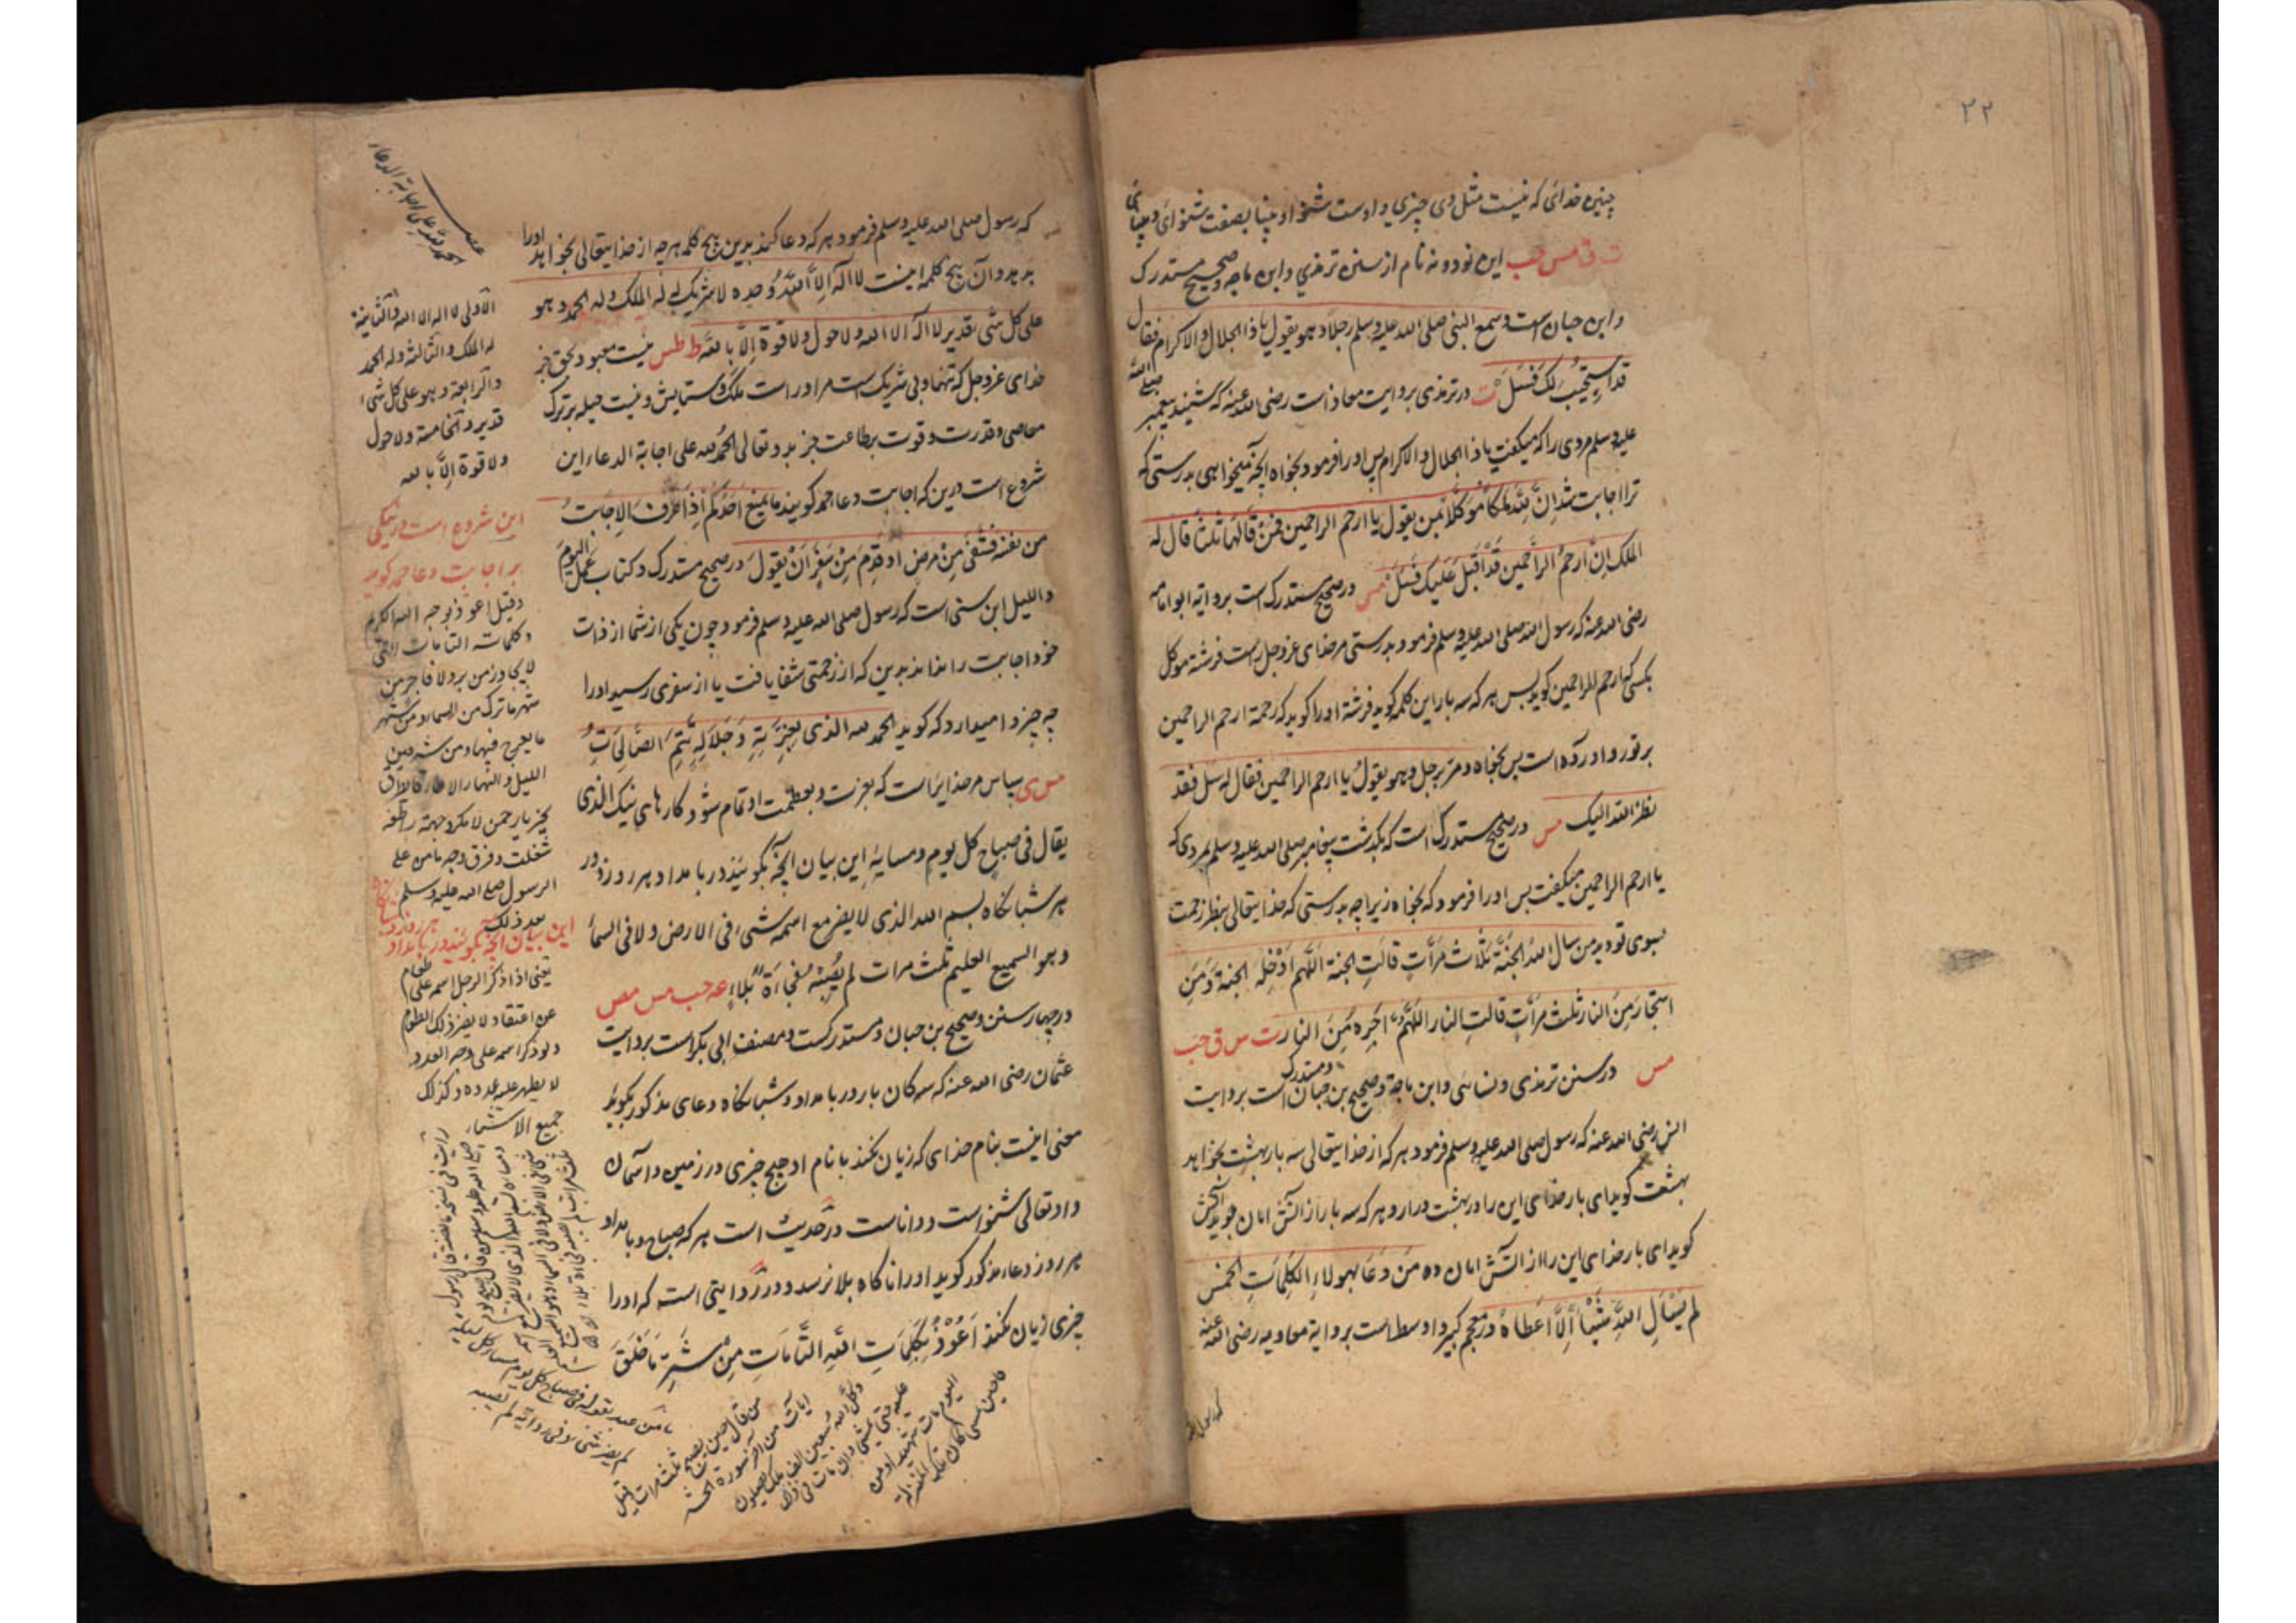 ۲۲
چنین خدای که نیست مثل وی چیزی و اوست شنوا و بینا بصفت شنوائی و بینائی
ت ق مس حب این نود و نه نام از سنن ترمذی و ابن ماجه و صحیح مستدرک
و ابن حبان است وسمع النبی صلی الله علیه وسلم رجلا وهو یقول یا ذا الجلال والاکرام فقال
قد استجیب لک فسل ت در ترمذی بروایت معاذ است رضی الله عنه که شنید پیغمبر صلی الله
علیه وسلم مردی را که میگفت یا ذا الجلال والاکرام پس او را فرمود بخواه آنچه میخواهی بدرستی که
ترا اجابت شد ان لله ملکا موکلا بمن یقول یا ارحم الراحمین فمن قالها ثلثا قال له
الملک ان ارحم الراحمین قد اقبل علیک فسل مس در صحیح مستدرک است بروایة ابو امامه
رضی الله عنه که رسول الله صلی الله علیه وسلم فرمود بدرستی مر خدای عز وجل راست فرشته موکل
بکسی که ارحم الراحمین گوید پس هر که سه بار این کلمه گوید فرشته او را گوید که رحمة ارحم الراحمین
بر تو رو آورده است پس بخواه ومر برجل وهو یقول یا ارحم الراحمین فقال له سل فقد
نظر الله الیک مس در صحیح مستدرک است که بگذشت پیغامبر صلی الله علیه وسلم بمردی که
یا ارحم الراحمین میگفت پس او را فرمود که بخواه زیراچه بدرستی که خدایتعالی بنظر رحمت
بسوی تو دید من سال الله الجنة ثلاث مرات قالت الجنة اللهم ادخله الجنة ومن
استجار من النار ثلث مرات قالت النار اللهم اجره من النار ت س ق حب
مس در سنن ترمذی و نسائی و ابن ماجة و صحیح بن حبان و مستدرک است بروایت
انس رضی الله عنه که رسول صلی الله علیه وسلم فرمود هر که از خدایتعالی سه بار بهشت بخواهد
بهشت گوید ای بار خدای این را در بهشت درار و هر که سه بار از آتش امان جوید آتش
گوید ای بار خدای این را از آتش امان ده من دعا بهولاء الکلمات الخمس
لم یسال الله شیئا الا اعطاه در معجم کبیر و اوسط است بروایة معاویه رضی الله عنه
که رسول الله
که رسول صلی الله علیه وسلم فرمود هر که دعا کند بدین پنج کلمه هر چه از خدایتعالی بخواهد او را
بدهد و آن پنج کلمه اینست لا اله الا الله وحده لا شریک له له الملک وله الحمد وهو
علی کل شیء قدیر لا اله الا الله ولا حول ولا قوة الا بالله ط طس نیست معبود بحق جز
خدای عز وجل که تنها و بی شریک است مر او راست ملک و ستایش و نیست حیله بر ترک
معاصی و قدرت و قوت بر طاعت جز بدو تعالی الحمد لله علی اجابة الدعاء این
شروع است درین که اجابت دعا حمد گویند ما یمنع احدکم اذا عرف الاجابة
من نفسه فشفی من مرض او قدم من سفر ان یقول در صحیح مستدرک و کتاب عمل الیوم
واللیل ابن سنی است که رسول صلی الله علیه وسلم فرمود چون یکی از شما از ذات
خود اجابت را نداند بدین که از زحمتی شفا یافت یا از سفری رسید او را
چه چیز وا میدارد که گوید الحمد لله الذی بعزته وجلاله تتم الصالحات
مس ی سپاس مر خدایراست که بعزت و بعظمت او تمام شود کارهای نیک الذی
یقال فی صباح کل یوم ومسایه این بیان آنچه بگویند در بامداد هر روز و در
هر شبانگاه بسم الله الذی لا یضر مع اسمه شیء فی الارض ولا فی السماء
وهو السمیع العلیم ثلث مرات لم یصبه فجاءة بلاء عه حب مس مص
در چهار سنن و صحیح بن حبان و مستدرکست و مصنف ابی بکر است بروایت
عثمان رضی الله عنه که سه کان بار در بامداد و شبانگاه دعای مذکور بگوید
معنی اینست بنام خدای که زیان نکند با نام او هیچ چیزی در زمین و آسمان
و او تعالی شنواست و داناست در حدیث است هر که صباح و بامداد
هر روز دعاء مذکور گوید او را ناگاه بلا نرسد و در روایتی است که او را
چیزی زیان نکند اعوذ بکلمات الله التامات من شر ما خلق
الحمد لله علی اجابة الدعاء
الاولی لا اله الا الله والثانیة
له الملک والثالثة وله الحمد
والرابعة وهو علی کل شیء
قدیر والخامسة ولا حول
ولا قوة الا بالله
این شروع است در نیکی
بر اجابت دعا حمد گویند
وقیل اعوذ بوجه الله الکریم
وکلمات التامات التی
لا یجاوزهن بر ولا فاجر من
شر ما ینزل من السماء ومن شر
ما یعرج فیها ومن شر فتن
اللیل والنهار الا طارقا یطرق
بخیر یا رحمن
الرسول صلی الله علیه وسلم
بعد ذلک
این بیان آنچه بگویند در بامداد
هر روز و شبانگاه
یعنی اذا ذکر الرجل اسمه علی طعام
عن اعتقاد لا یضر ذلک الطعام
ولو ذکر اسمه علی وجه العدو
لا یظهر علیه عدوه وکذلک
جمیع الاشیاء
ما من عبد یقول فی صباح کل یوم
لم یضر شیء وفی روایة لم یصبه
من قال حین یصبح ثلث مرات
ایات من آخر سورة الحشر
وکل الله سبعین الف ملک یصلون
علیه حتی یمسی وان مات فی ذلک
الیوم مات شهیدا ومن
قالها حین یمسی کان بتلک المنزلة